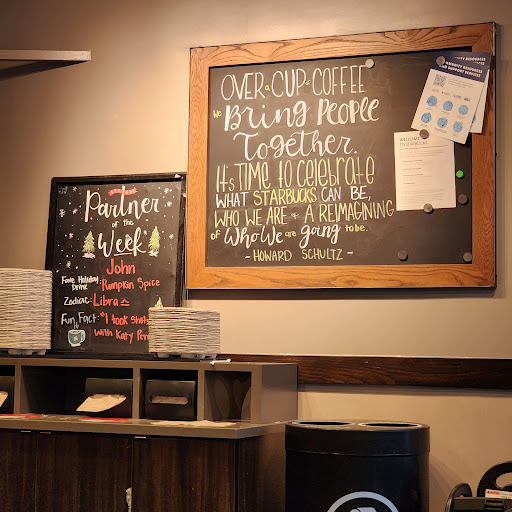 OVER a CUP of COFFEE
we Bring People
Together.
It's TIME to Celebrate
WHAT STARBUCKS CAN BE,
WHO WE ARE & A REIMAGINING
of Who We are going to be.
- HOWARD SCHULTZ -
Partner
OF THE
Week
John
Fave Holiday Drink: Pumpkin Spice
Zodiac: Libra ♎
Fun Fact: "I took shots
with Katy Perr
WELCOME